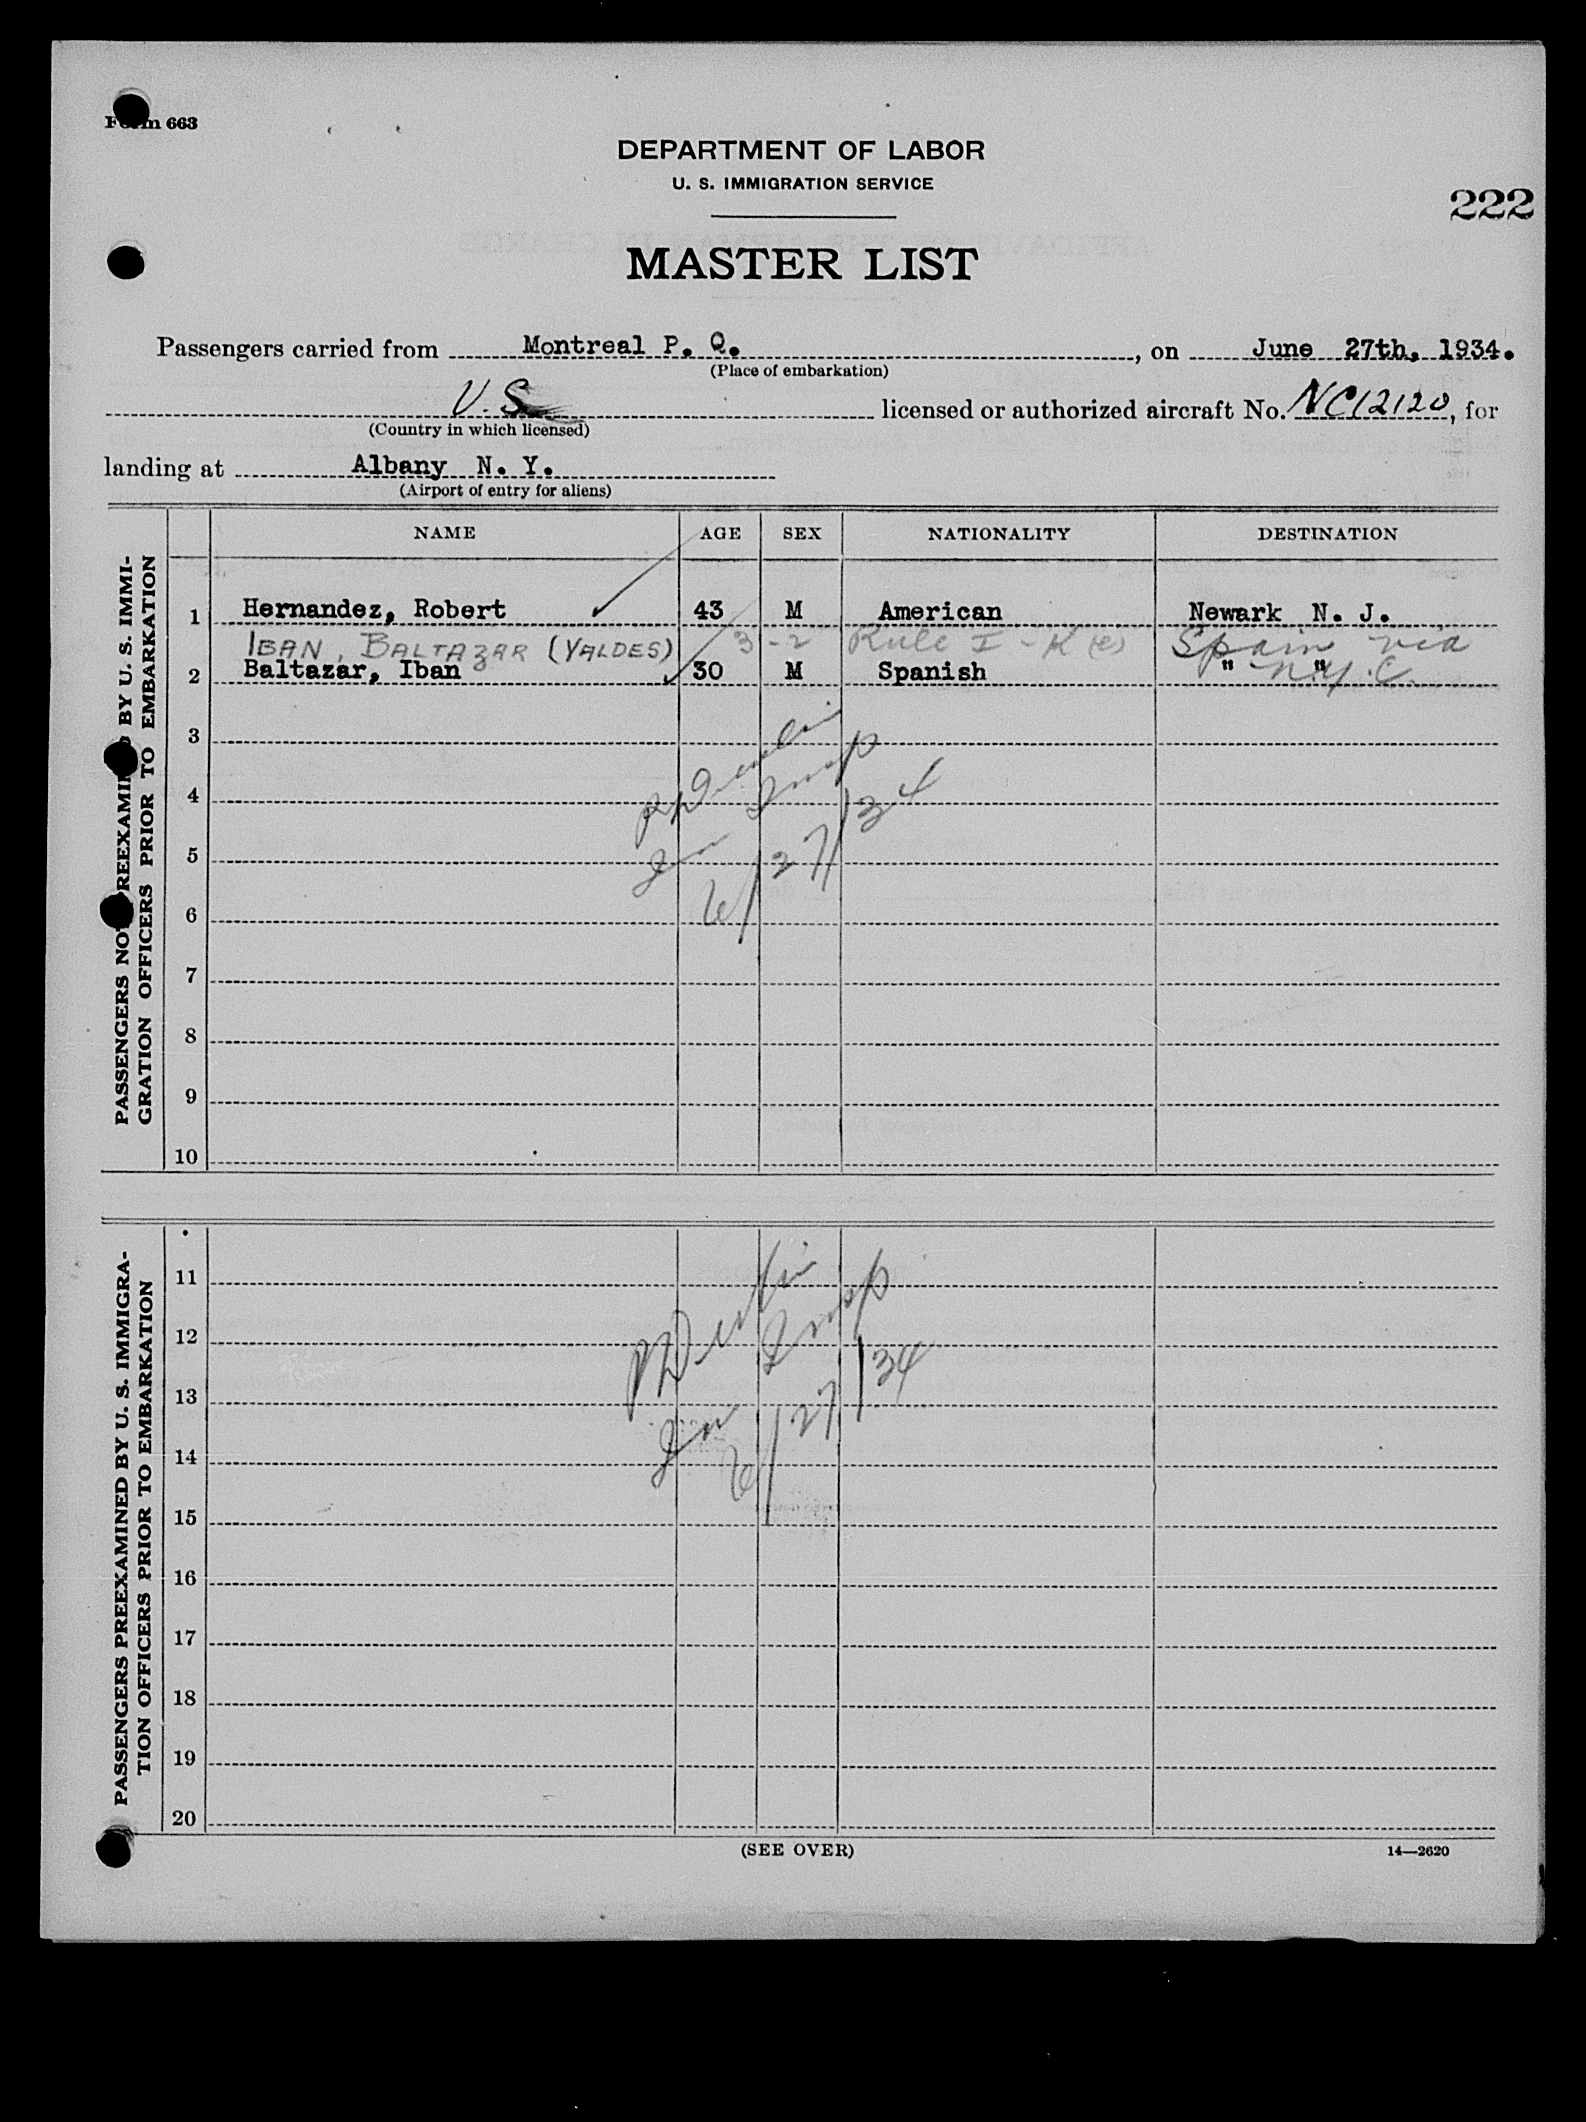 Form 663
DEPARTMENT OF LABOR
U. S. IMMIGRATION SERVICE
222
MASTER LIST
Passengers carried from Montreal P. Q., on June 27th, 1934.
(Place of embarkation)
U.S. licensed or authorized aircraft No. NC12120, for
(Country in which licensed)
landing at Albany N. Y.
(Airport of entry for aliens)
NAME AGE SEX NATIONALITY DESTINATION
PASSENGERS NOT PREEXAMINED BY U. S. IMMI-
GRATION OFFICERS PRIOR TO EMBARKATION
1 Hernandez, Robert 43 M American Newark N. J.
IBAN, BALTAZAR (VALDES) 3-2 Rule I-K(e) Spain via
2 Baltazar, Iban 30 M Spanish " " N.Y.C.
3
4
5
6
7
8
9
10
Insp
Im
6/27/34
PASSENGERS PREEXAMINED BY U. S. IMMIGRA-
TION OFFICERS PRIOR TO EMBARKATION
11
12
13
14
15
16
17
18
19
20
Insp
Im
6/27/34
(SEE OVER)
14—2620